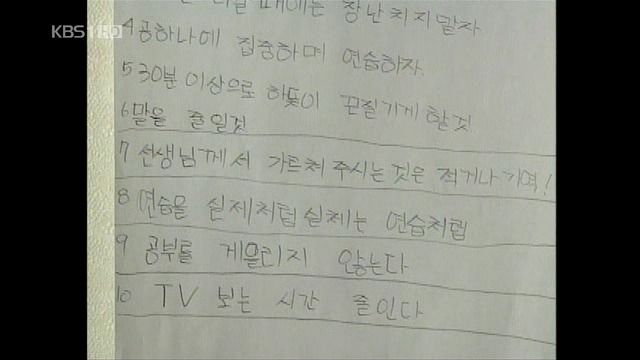 KBS1 HD
때에는 장난치지말자
4 공하나에 집중하며 연습하자.
5 30분 이상으로 끈질기게 할것
6 말을 줄일것
7 선생님께서 가르처 주시는 것은 적거나 기억!
8 연습을 실제처럼 실제는 연습처럼
9 공부를 게을리지 않는다
10 TV 보는 시간 줄인다